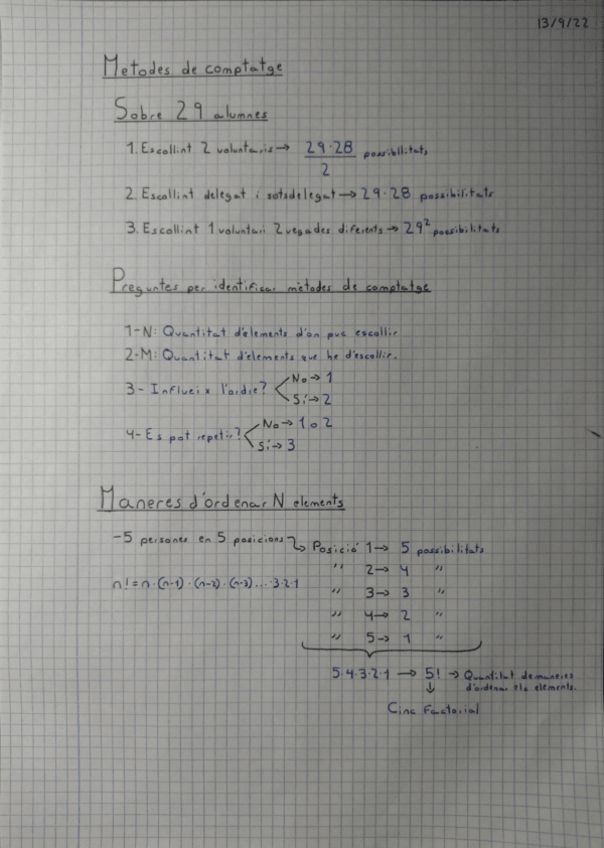 13/9/22
Metodes de comptatge
Sobre 29 alumnes
1. Escollint 2 voluntaris → 29·28 / 2 possibilitats
2. Escollint delegat i sotsdelegat → 29·28 possibilitats
3. Escollint 1 voluntari 2 vegades diferents → 29² possibilitats
Preguntes per identificar mètodes de comptatge
1-N: Quantitat d'elements d'on puc escollir
2-M: Quantitat d'elements que he d'escollir.
3- Influeix l'ordre? No → 1
Sí → 2
4- Es pot repetir? No → 1 o 2
Sí → 3
Maneres d'ordenar N elements
-5 persones en 5 posicions → Posició 1 → 5 possibilitats
" 2 → 4 "
n! = n·(n-1)·(n-2)·(n-3)...·3·2·1 " 3 → 3 "
" 4 → 2 "
" 5 → 1 "
5·4·3·2·1 → 5! → Quantitat de maneres
d'ordenar els elements.
↓
Cinc Factorial